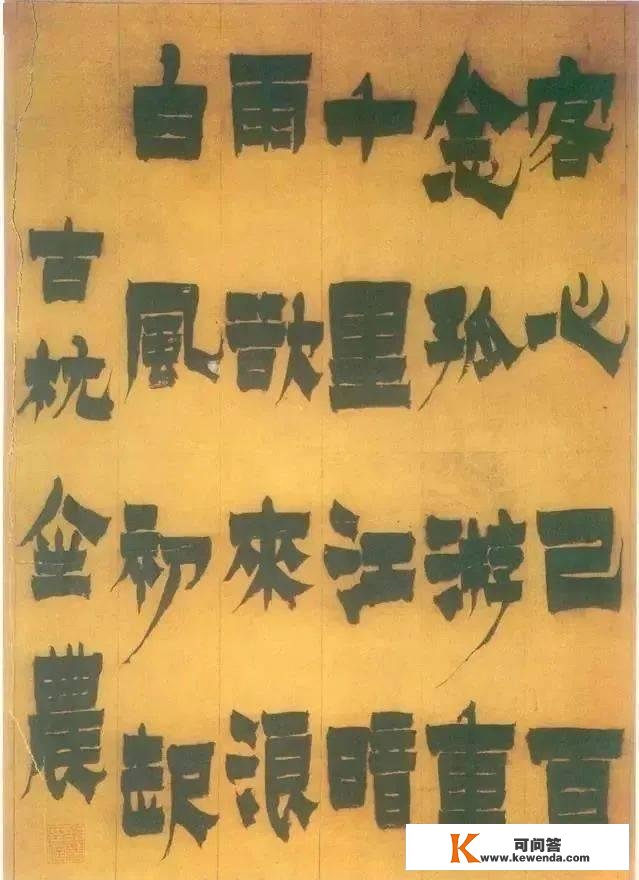 客心已百
念孤游重
千里江暗
雨欲來浪
白風初起
古杭金農
K 可问答
www.kewenda.com